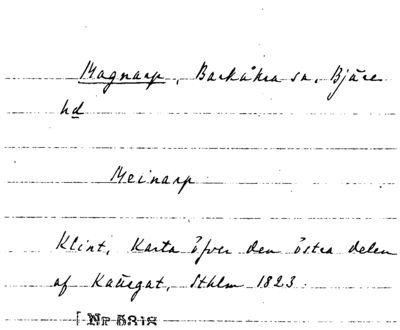 Magnarp, Barkåkra sn, Bjäre
hd
Meinarp
Klint, Karta öfver den östra delen
af Kattegat, Sthlm 1823.